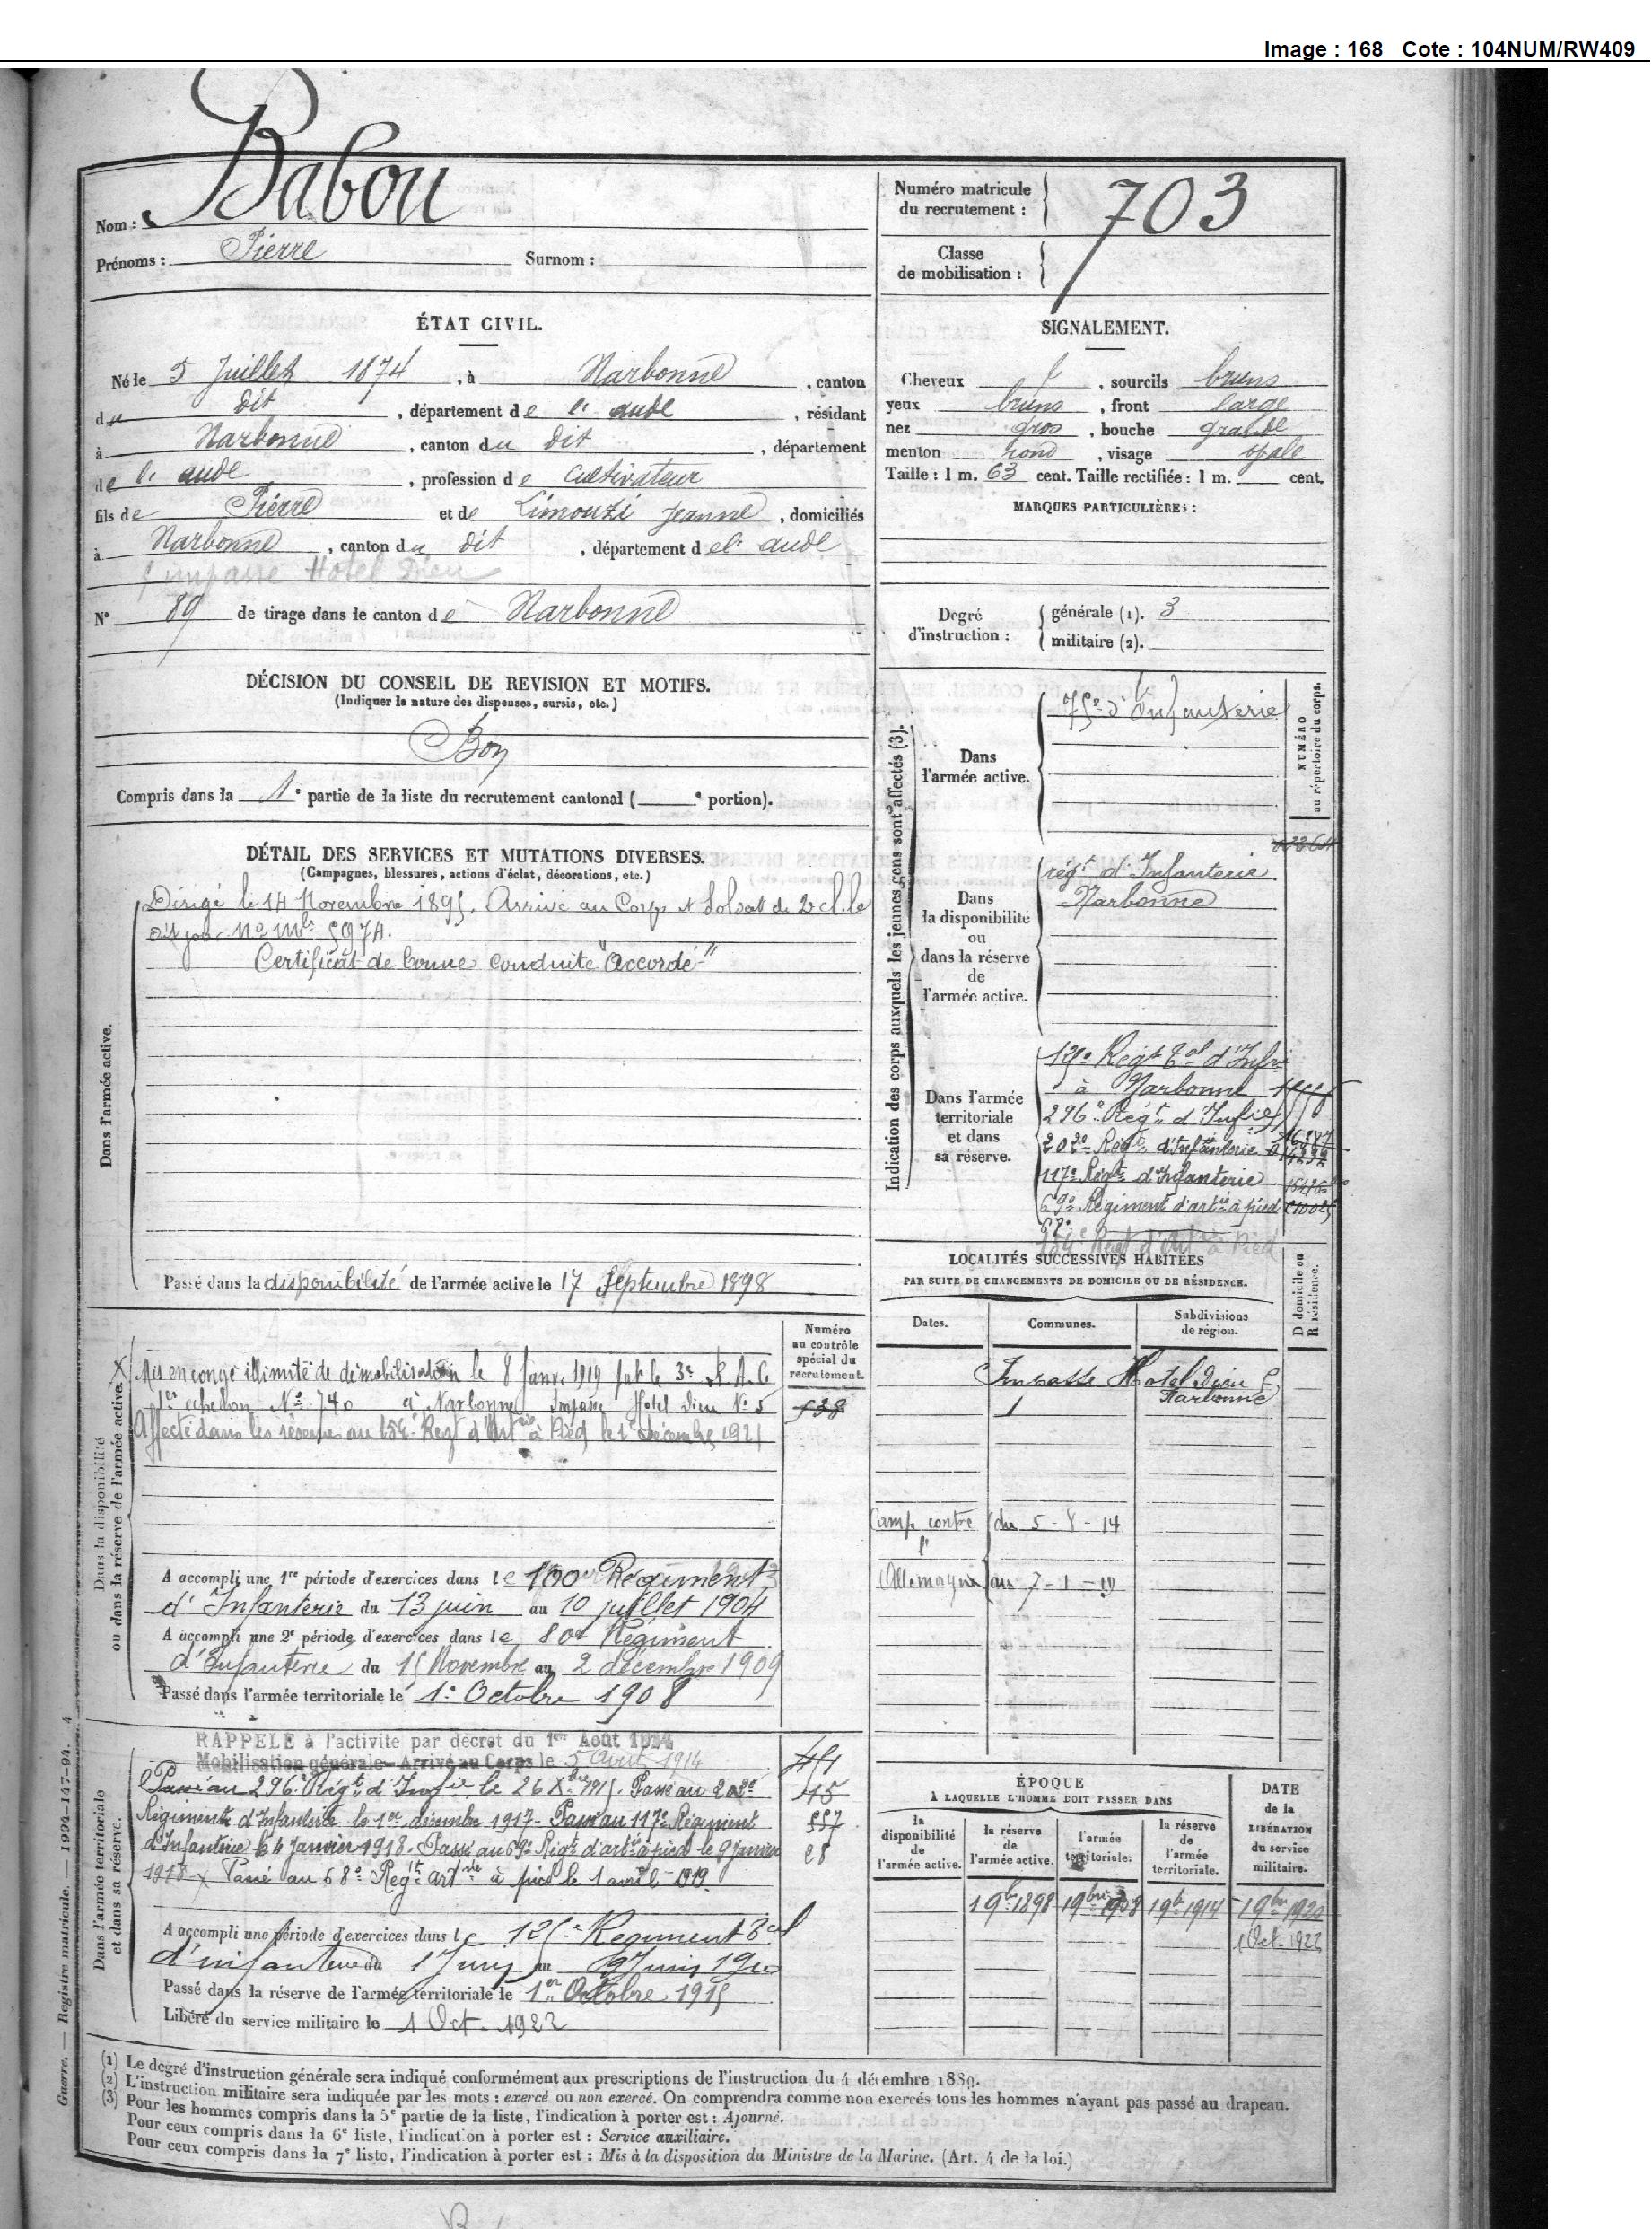 Image : 168 Cote : 104NUM/RW409
Nom : Babou
Prénoms : Pierre Surnom :
Numéro matricule du recrutement : 703
Classe de mobilisation :
ÉTAT CIVIL.
Né le 5 Juillet 1874, à Narbonne, canton
du dit, département de l'aude, résidant
à Narbonne, canton du dit, département
de l'aude, profession de Cultivateur
fils de Pierre et de Limouzi Jeanne, domiciliés
à Narbonne, canton du dit, département de l'aude
impasse Hotel Dieu
N° 89 de tirage dans le canton de Narbonne
SIGNALEMENT.
Cheveux, sourcils bruns
yeux bruns, front large
nez gros, bouche grande
menton rond, visage ovale
Taille : 1 m. 63 cent. Taille rectifiée : 1 m. cent.
MARQUES PARTICULIÈRES :
Degré d'instruction : générale (1). 3
militaire (2).
DÉCISION DU CONSEIL DE REVISION ET MOTIFS.
(Indiquer la nature des dispenses, sursis, etc.)
Bon
Compris dans la 1e partie de la liste du recrutement cantonal ( e portion).
DÉTAIL DES SERVICES ET MUTATIONS DIVERSES.
(Campagnes, blessures, actions d'éclat, décorations, etc.)
Dans l'armée active.
Dirigé le 14 Novembre 1895. Arrivé au Corps & Soldat de 2e cl. le
dit jour. No Mle 5974.
Certificat de bonne conduite "Accordé"
Passé dans la disponibilité de l'armée active le 17 Septembre 1898
Indication des corps auxquels les jeunes gens sont affectés (3).
NUMÉRO au répertoire du corps.
Dans l'armée active.
d'Infanterie
Dans la disponibilité ou dans la réserve de l'armée active.
régt d'Infanterie
Narbonne
Dans l'armée territoriale et dans sa réserve.
Régt Tal d'Infie
à Narbonne
296e Régt d'Infie
202e Régt d'Infanterie
117e Régt d'Infanterie
69e Régiment d'artie à pied
154e Regt d'Artie à Pied
LOCALITÉS SUCCESSIVES HABITÉES
PAR SUITE DE CHANGEMENTS DE DOMICILE OU DE RÉSIDENCE.
D domicile ou R résidence.
Dates. Communes. Subdivisions de région.
Impasse Hotel Dieu 5
Narbonne
Camp contre l'Allemagne du 5-8-14
au 7-1-19
Dans la disponibilité ou dans la réserve de l'armée active.
Numéro au contrôle spécial du recrutement.
Mis en congé illimité de démobilisation le 8 Janv. 1919 par le 3e R.A.C
1er echelon No 740 à Narbonne Impasse Hotel Dieu No 5
Affecté dans les réserves au 154e Regt d'Artie à Pied le 1er Décembre 1921
A accompli une 1re période d'exercices dans le 100e Régiment
d'Infanterie du 13 juin au 10 juillet 1904
A accompli une 2e période d'exercices dans le 80e Régiment
d'Infanterie du 15 Novembre au 2 décembre 1909
Passé dans l'armée territoriale le 1er Octobre 1908
Dans l'armée territoriale et dans sa réserve.
RAPPELÉ à l'activité par décret du 1er Août 1914
Mobilisation générale - Arrivé au Corps le 5 Aout 1914
Passé au 296e Régt d'Infie le 26 Xbre 1915. Passé au 202e
Régiment d'Infanterie le 1er décembre 1917 - Passé au 117e Régiment
d'Infanterie le 4 Janvier 1918. Passé au 69e Régt d'artie à pied le 9 Janvier
1918 x Passé au 68e Regt artie à pied le 1 avril 1919.
A accompli une période d'exercices dans le 125e Regiment Tal
d'infanterie du 1 Juin au 9 Juin
Passé dans la réserve de l'armée territoriale le 1er Octobre 1915
Libéré du service militaire le 1 Oct. 1922
ÉPOQUE
A LAQUELLE L'HOMME DOIT PASSER DANS
la disponibilité de l'armée active.
la réserve de l'armée active.
l'armée territoriale.
la réserve de l'armée territoriale.
DATE de la LIBÉRATION du service militaire.
1 9bre 1898 1 9bre 1908 1 9bre 1914 1 9bre 1920
1 Oct. 1922
(1) Le degré d'instruction générale sera indiqué conformément aux prescriptions de l'instruction du 4 décembre 1889.
(2) L'instruction militaire sera indiquée par les mots : exercé ou non exercé. On comprendra comme non exercés tous les hommes n'ayant pas passé au drapeau.
(3) Pour les hommes compris dans la 5e partie de la liste, l'indication à porter est : Ajourné.
Pour ceux compris dans la 6e liste, l'indication à porter est : Service auxiliaire.
Pour ceux compris dans la 7e liste, l'indication à porter est : Mis à la disposition du Ministre de la Marine. (Art. 4 de la loi.)
Guerre. — Registre matricule. — 1994-147-94. 4